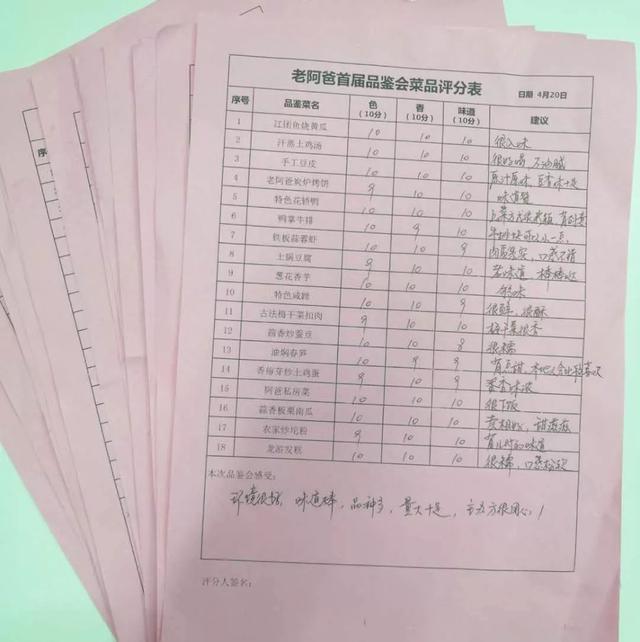 老阿爸首届品鉴会菜品评分表 日期 4月20日
序号 品鉴菜名 色（10分） 香（10分） 味道（10分） 建议
1 江团鱼烧黄瓜 10 10 10 很入味
2 汗蒸土鸡汤 10 10 10 很好喝 不油腻
3 手工豆皮 10 10 10 原汁原味 豆香味十足
4 老阿爸炭炉烤饼 9 10 10 味道赞
5 特色花轿鸭 10 10 10 上菜方式很老板 有创意
6 鸭掌牛排 10 9 10 牛排块可以小一点
7 铁板蒜蓉虾 10 9 10 肉质紧实，口感不错
8 土锅豆腐 9 10 10 老味道 棒棒哒
9 葱花香芋 9 10 10
10 特色咸蹄 10 10 9 很鲜，很酥
11 古法梅干菜扣肉 9 10 10 梅干菜很香
12 茴香炒蚕豆 10 10 8 很糯
13 油焖春笋 10 9 9 有点甜，本地人会比较喜欢
14 香椿芽炒土鸡蛋 9 9 9 香香味浓
15 阿爸私房菜 10 10 10 很下饭
16 蒜香板栗南瓜 10 10 10 卖相好，甜蜜蜜
17 农家炒坨粉 9 10 10 有儿时的味道
18 龙游发糕 10 10 10 很糯，口感松软
本次品鉴会感受：
环境很好，味道棒，品种多，量大十足，主办方很用心！
评分人签名：
序